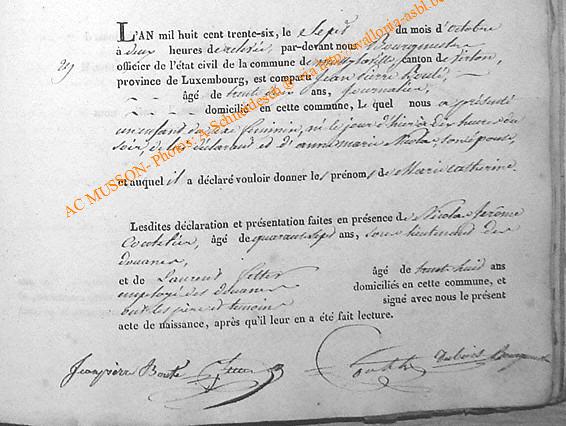 L'AN mil huit cent trente-six, le Sept du mois d'octobre
29 à deux heures de relevée, par-devant nous Bourgmestre
officier de l'état civil de la commune de canton de Virton,
province de Luxembourg, est comparu Jean pierre
âgé de trente ans, journalier,
domicilié en cette commune, Le quel nous a présenté
un enfant de sexe féminin, né le jour d'hier à dix heures du
soir, de lui déclarant et d'annemarie Nicolas son épouse,
et auquel il a déclaré vouloir donner les prénoms de Marie catherine.
Lesdites déclaration et présentation faites en présence de Nicolas Jérôme
âgé de quarante sept ans, sous lieutenant des
douanes,
et de Laurent âgé de trente huit ans
employé des douanes domiciliés en cette commune, et
ont les père et témoins signé avec nous le présent
acte de naissance, après qu'il leur en a été fait lecture.
Jeanpierre
AC MUSSON- Photos: A